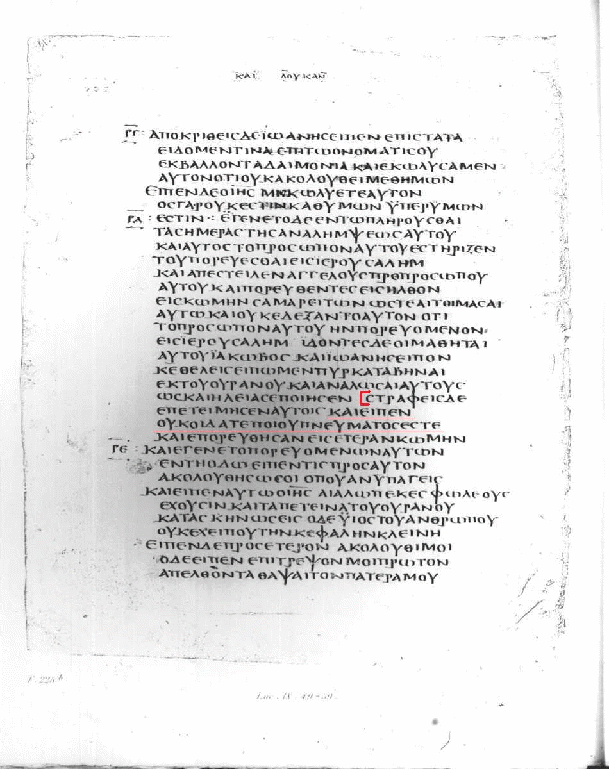 ΚΑΤ ΛΟΥΚΑΝ
ΑΠΟΚΡΙΘΕΙϹΔΕΪΩΑΝΗϹΕΙΠΕΝ ΕΠΙϹΤΑΤΑ
ΕΙΔΟΜΕΝΤΙΝΑ ΕΠΙΤΩΟΝΟΜΑΤΙϹΟΥ
ΕΚΒΑΛΛΟΝΤΑΔΑΙΜΟΝΙΑ ΚΑΙΕΚΩΛΥϹΑΜΕΝ
ΑΥΤΟΝΟΤΙΟΥΚΑΚΟΛΟΥΘΕΙΜΕΘΗΜΩΝ
ΕΙΠΕΝΔΕΟΙΗϹ ΜΗΚΩΛΥΕΤΕΑΥΤΟΝ
ΟϹΓΑΡΟΥΚΕϹΤΙΝΚΑΘΥΜΩΝ ΥΠΕΡΥΜΩΝ
ΕϹΤΙΝ · ΕΓΕΝΕΤΟΔΕΕΝΤΩΠΛΗΡΟΥϹΘΑΙ
ΤΑϹΗΜΕΡΑϹΤΗϹΑΝΑΛΗΜΨΕΩϹΑΥΤΟΥ
ΚΑΙΑΥΤΟϹΤΟΠΡΟϹΩΠΟΝΑΥΤΟΥΕϹΤΗΡΙΖΕΝ
ΤΟΥΠΟΡΕΥΕϹΘΑΙΕΙϹΙΕΡΟΥϹΑΛΗΜ
ΚΑΙΑΠΕϹΤΕΙΛΕΝΑΓΓΕΛΟΥϹΠΡΟΠΡΟϹΩΠΟΥ
ΑΥΤΟΥ ΚΑΙΠΟΡΕΥΘΕΝΤΕϹΕΙϹΗΛΘΟΝ
ΕΙϹΚΩΜΗΝ ϹΑΜΑΡΕΙΤΩΝ ΩϹΤΕΑΙΤΟΙΜΑϹΑΙ
ΑΥΤΩ ΚΑΙΟΥΚΕΔΕΞΑΝΤΟΑΥΤΟΝ ΟΤΙ
ΤΟΠΡΟϹΩΠΟΝΑΥΤΟΥ ΗΝΠΟΡΕΥΟΜΕΝΟΝ
ΕΙϹΙΕΡΟΥϹΑΛΗΜ ΪΔΟΝΤΕϹΔΕΟΙΜΑΘΗΤΑΙ
ΑΥΤΟΥΪΑΚΩΒΟϹ ΚΑΙΪΩΑΝΗϹΕΙΠΟΝ
ΚΕΘΕΛΕΙϹΕΙΠΩΜΕΝΠΥΡΚΑΤΑΒΗΝΑΙ
ΕΚΤΟΥΟΥΡΑΝΟΥ ΚΑΙΑΝΑΛΩϹΑΙΑΥΤΟΥϹ
ΩϹΚΑΙΗΛΕΙΑϹΕΠΟΙΗϹΕΝ ϹΤΡΑΦΕΙϹΔΕ
ΕΠΕΤΕΙΜΗϹΕΝΑΥΤΟΙϹ ΚΑΙΕΙΠΕΝ
ΟΥΚΟΙΔΑΤΕΠΟΙΟΥΠΝΕΥΜΑΤΟϹΕϹΤΕ
ΚΑΙΕΠΟΡΕΥΘΗϹΑΝ ΕΙϹΕΤΕΡΑΝΚΩΜΗΝ
ΚΑΙΕΓΕΝΕΤΟΠΟΡΕΥΟΜΕΝΩΝΑΥΤΩΝ
ΕΝΤΗΟΔΩ ΕΙΠΕΝΤΙϹΠΡΟϹΑΥΤΟΝ
ΑΚΟΛΟΥΘΗϹΩϹΟΙ ΟΠΟΥΑΝΥΠΑΓΕΙϹ
ΚΑΙΕΙΠΕΝΑΥΤΩΟΙΗϹ ΑΙΑΛΩΠΕΚΕϹ ΦΩΛΕΟΥϹ
ΕΧΟΥϹΙΝ ΚΑΙΤΑΠΕΤΕΙΝΑΤΟΥΟΥΡΑΝΟΥ
ΚΑΤΑϹΚΗΝΩϹΕΙϹ ΟΔΕΥΙΟϹΤΟΥΑΝΘΡΩΠΟΥ
ΟΥΚΕΧΕΙΠΟΥΤΗΝΚΕΦΑΛΗΝΚΛΕΙΝΗ
ΕΙΠΕΝΔΕΠΡΟϹΕΤΕΡΟΝ ΑΚΟΛΟΥΘΙΜΟΙ
ΟΔΕΕΙΠΕΝ ΕΠΙΤΡΕΨΟΝ ΜΟΙΠΡΩΤΟΝ
ΑΠΕΛΘΟΝΤΑ ΘΑΨΑΙΤΟΝΠΑΤΕΡΑΜΟΥ
F. 225 b
Luc. IX. 49-59.